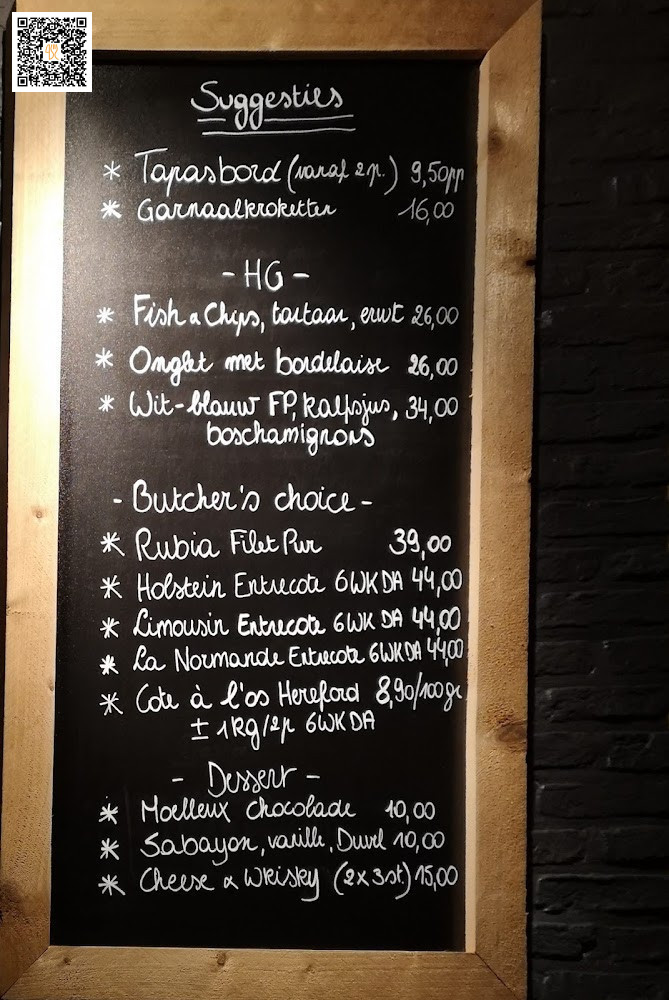 Suggesties
* Tapasbord (vanaf 2p.) 9,50pp
* Garnaalkroketten 16,00
- HG -
* Fish & Chips, tartaar, erwt 26,00
* Onglet met bordelaise 26,00
* Wit-blauw FP, kalfsjus, 34,00
boschamignons
- Butcher's choice -
* Rubia Filet Pur 39,00
* Holstein Entrecote 6WK DA 44,00
* Limousin Entrecote 6WK DA 44,00
* La Normande Entrecote 6WK DA 44,00
* Cote à l'os Hereford 8,90/100gr
± 1kg/2p 6WK DA
- Dessert -
* Moelleux Chocolade 10,00
* Sabayon, vanille, Duvel 10,00
* Cheese & Whisky (2x3st.) 15,00